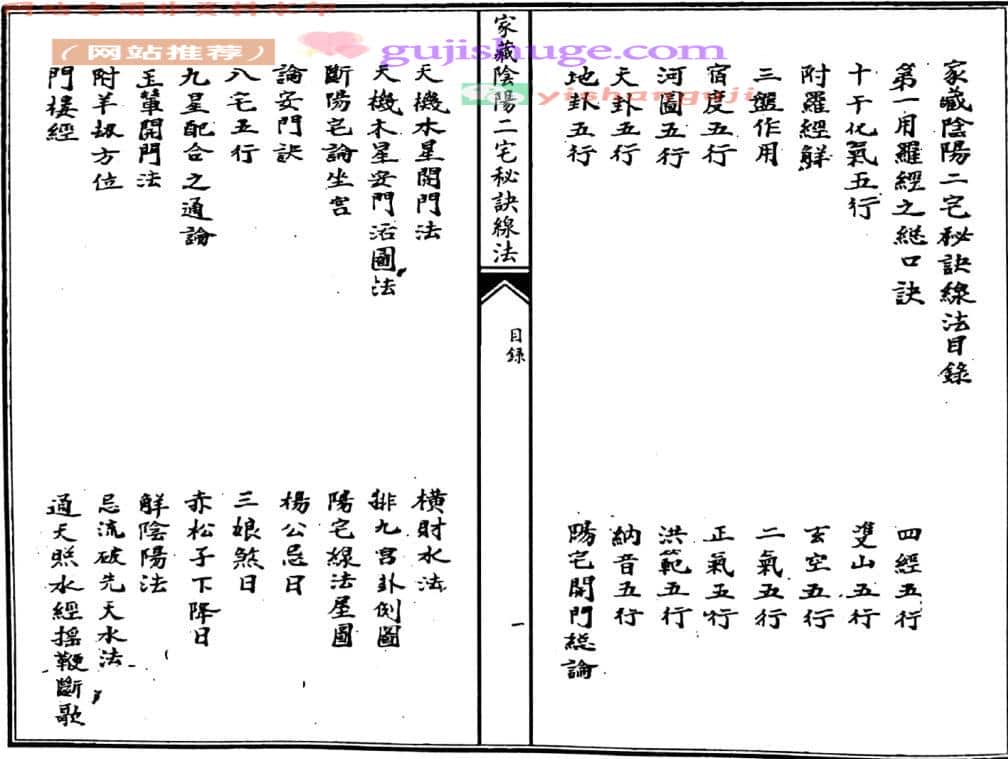 家藏陰陽二宅秘訣線法目錄
第一用羅經之總口訣
十干化氣五行
附羅經解
三盤作用
宿度五行
河圖五行
天卦五行
地卦五行
四經五行
雙山五行
玄空五行
二氣五行
正氣五行
洪範五行
納音五行
陽宅開門總論
家藏陰陽二宅秘訣線法
目錄
一
天機水星開門法
天機木星安門活圖法
斷陽宅論坐宮
論安門訣
八宅五行
九星配合之通論
玉輦開門法
附羊刼方位
門樓經
橫財水法
排九宮卦例圖
陽宅線法屋圖
楊公忌日
三娘煞日
赤松子下降日
解陰陽法
忌流破先天水法
通天照水經搖鞭斷歌
(网站推荐)
gujishuge.com
yishanguji